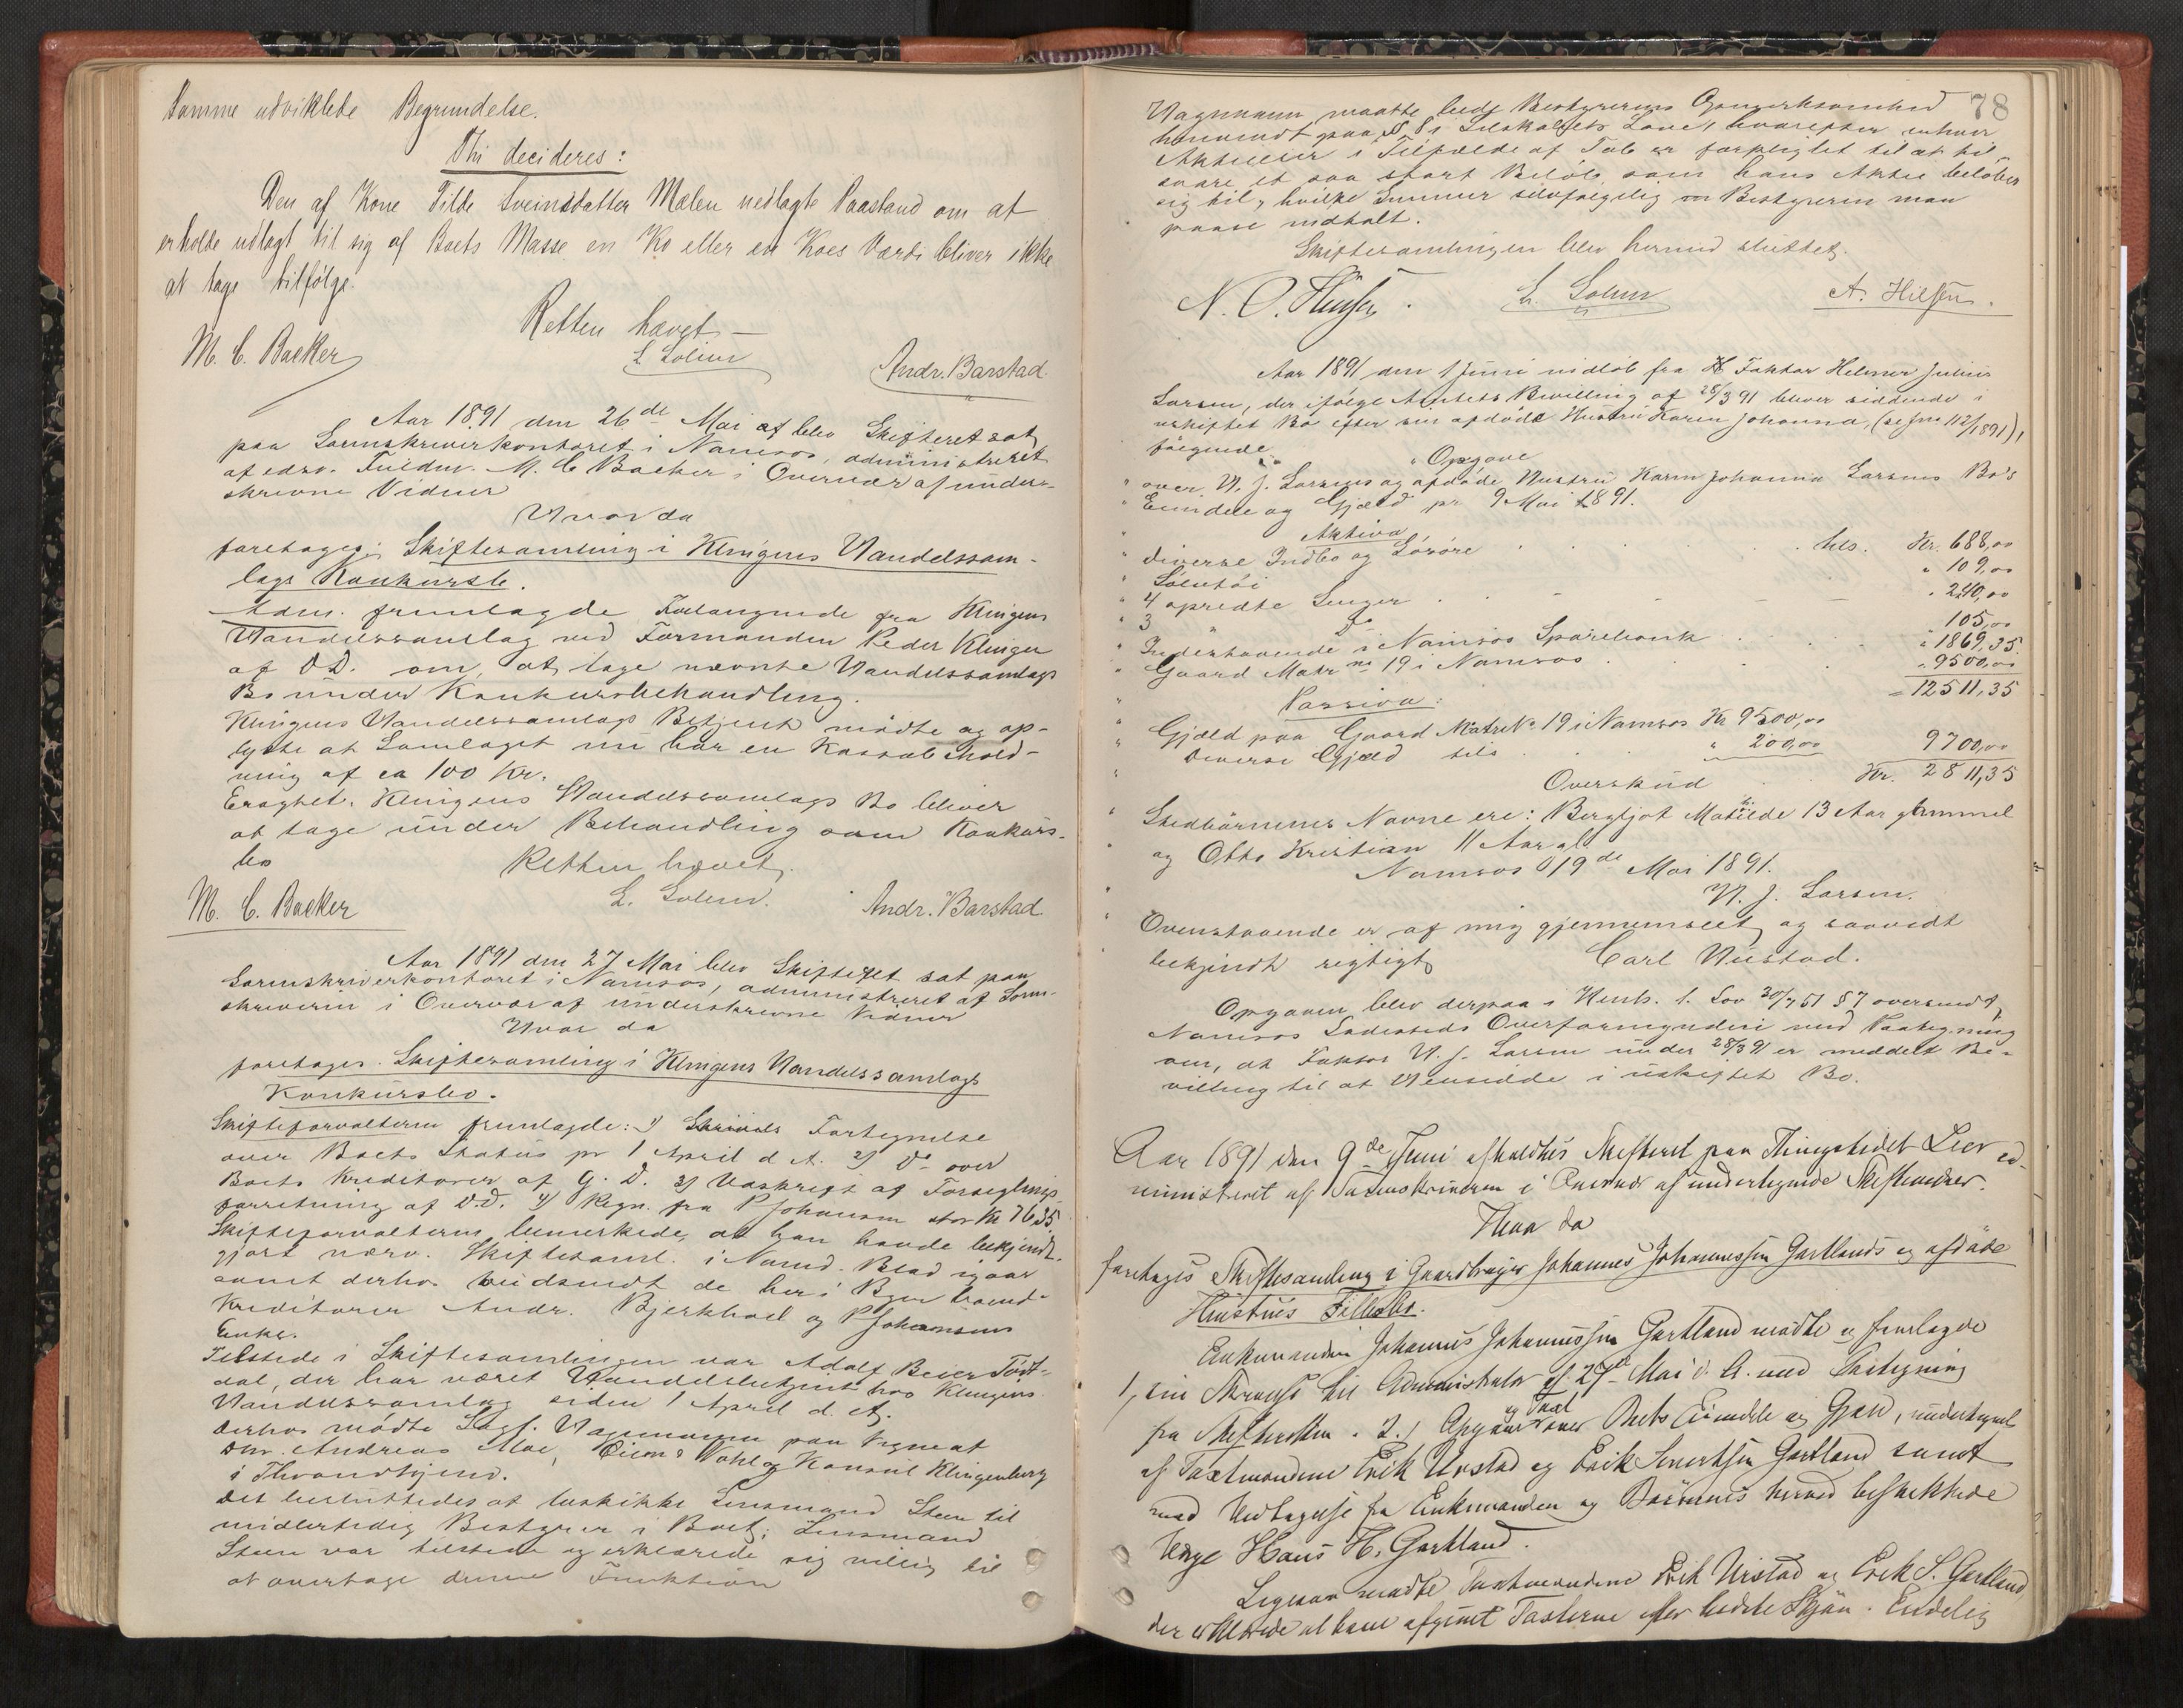 samme udviklede Begrundelse.
Thi decideres:
Den af Kone Tilde Sveinsdatter Mælen nedlagte Paastand om at
erholde udlagt til sig af Boets Masse en Ko eller en Koes Værdi bliver ikke
at tage tilfølge.
Retten hævet
M. C. Backer
L. Solem
Andr. Barstad
Aar 1891 den 26de Mai af blev Skifteret sat
paa Sorenskriverkontoret i Namsos, administreret
af edsv. Fuldm. M. C. Backer i Overvær af under-
skrevne Vidner
Hvorda
foretoges: Skiftesamling i Klingens Handelssam-
lags Konkursbo.
Adm. fremlagde Forlangende fra Klingens
Handelssamlag ved Formanden Peder Klingen
af D.D. om, at tage nævnte Handelssamlags
Bo under Konkursbehandling.
Klingens Handelssamlags Betjent mødte og op-
lyste at Samlaget nu har en Kassabehold-
ning af ca 100 Kr.
Eragtet. Klingens Handelssamlags Bo bliver
at tage under Behandling som Konkurs-
bo
Retten hævet.
M. C. Backer
L. Solem.
Andr. Barstad.
Aar 1891 den 27 Mai blev Skifteret sat paa
Sorenskriverkontoret i Namsos, administreret af Soren-
skriveren i Overvær af underskrevne Vidner
Hvor da
foretoges. Skiftesamling i Klingens Handelssamlags
Konkursbo.
Skifteforvalteren fremlagde: 1) Fortegnelse
over Boets Status pr 1 April d. A. 2) Do over
Boets Kreditorer af G. D. 3) Udskrift af Forseglings-
forretning af D.D. 4) Regn. fra P Johansen stor Kr 76,35
Skifteforvalteren bemerkede, at han havde bekjendt-
gjort nærv. Skiftesaml. i Namd. Blad igaar
samt derhos tilsendt de her i Byen boend-
Kreditorer Andr. Bjerkhoel og P Johansens
Enke.
Tilstede i Skiftesamlingen var Adolf Beier
dal, der har været Handelsbetjent hos Klingens
Handelssamlag siden 1 April d. A.
Derhos mødte Sagf. Vagnmann paa Vegne af
Andreas Moe, Wahl og Konsul Klingenberg
i Throndhjem.
Det besluttedes at beskikke Lensmand Steen til
midlertidig Bestyrer i Boet. Lensmand
Steen var tilstede og erklærede sig villig til
at overtage denne Funktion
78
Vagnmann maatte lede Bestyrerens Opmærksomhed
henvendt paa § 8 i Selskabets Love, hvorefter enhver
Aktieeier i Tilfælde af Tab er forpligtet til at til-
svare et saa stort Beløb som hans Aktie beløber
sig til, hvilke Summer selvfølgelig Bestyreren maa
paase indbetalt.
Skiftesamlingen blev hermed sluttet.
L. Solem
A. Hilsen.
Aar 1891 den 1 Juni indløb fra Faktor Helmer Julius
Larsen, der ifølge Amtets Bevilling af 28/3 91 bliver siddende i
uskiftet Bo efter sin afdøde Hustru Karen Johanna, (se Jrn 112/1891),
følgende
"Opgave
" over H. J. Larsens og afdøde Hustru Karen Johanna Larsens Bo's
" Eiendele og Gjæld pr 9 Mai 1891.
Aktiva
" diverse Indbo og Løsøre . . . Kr. 688,00
" Sølvtøi " 109,00
" 4 opredte Senger . . . " 240,00
" 3 Do 105,00
" Indestaaende i Namsos Sparebank . " 1869,35
" Gaard Matr no 19 i Namsos . . " 9500,00
= 12511,35
Passiva:
" Gjæld paa Gaard Matr No 19 i Namsos Kr 9500,00
" Diverse Gjæld tils . . " 200,00 9700,00
Overskud . Kr. 2811,35
" Stedbørnenes Navne ere: Bergljot Matilde 13 Aar gammel
" og Otto Kristian 11 Aar gl.
Namsos 19de Mai 1891.
H. J. Larsen.
" Ovenstaaende er af mig gjennemseet og saavidt
bekjendt rigtigt
Carl Nustad.
Opgaven blev derpaa i Henh. t. Lov 30/7 51 § 7 oversendt
Namsos Ladesteds Overformynderi med Paategning
om, at Faktor H. J. Larsen under 28/3 91 er meddelt Be-
villing til at hensidde i uskiftet Bo.
Aar 1891 den 9de Juni afholdtes Skifteret paa Thingstedet Lier ad-
ministreret af Sorenskriveren i Overvær af undertegnede Skiftevidner.
Hvor da
foretoges Skiftesamling i Gaardbruger Johannes Johannessen Gartlands og afdøde
Hustrues Fællesbo.
Enkemanden Johannes Johannessen Gartland mødte og fremlagde
1, sin Skrivelse til Administrator af 27de Mai d. A. med Paategning
fra Skifteretten. 2.) Opgave og Taxt over Boets Eiendele og Gjæld, undertegnet
af Taxtmændene Erik Urstad og Erik Sivertsen Gartland samt
med Vedtagelse fra Enkemanden og Børnenes herved beskikkede
Verge Hans H. Gartland.
Ligesaa mødte Taxtmændene Erik Urstad og Erik S. Gartland,
der erklærede at have afgivet Taxterne efter bedste Skjøn. Endelig